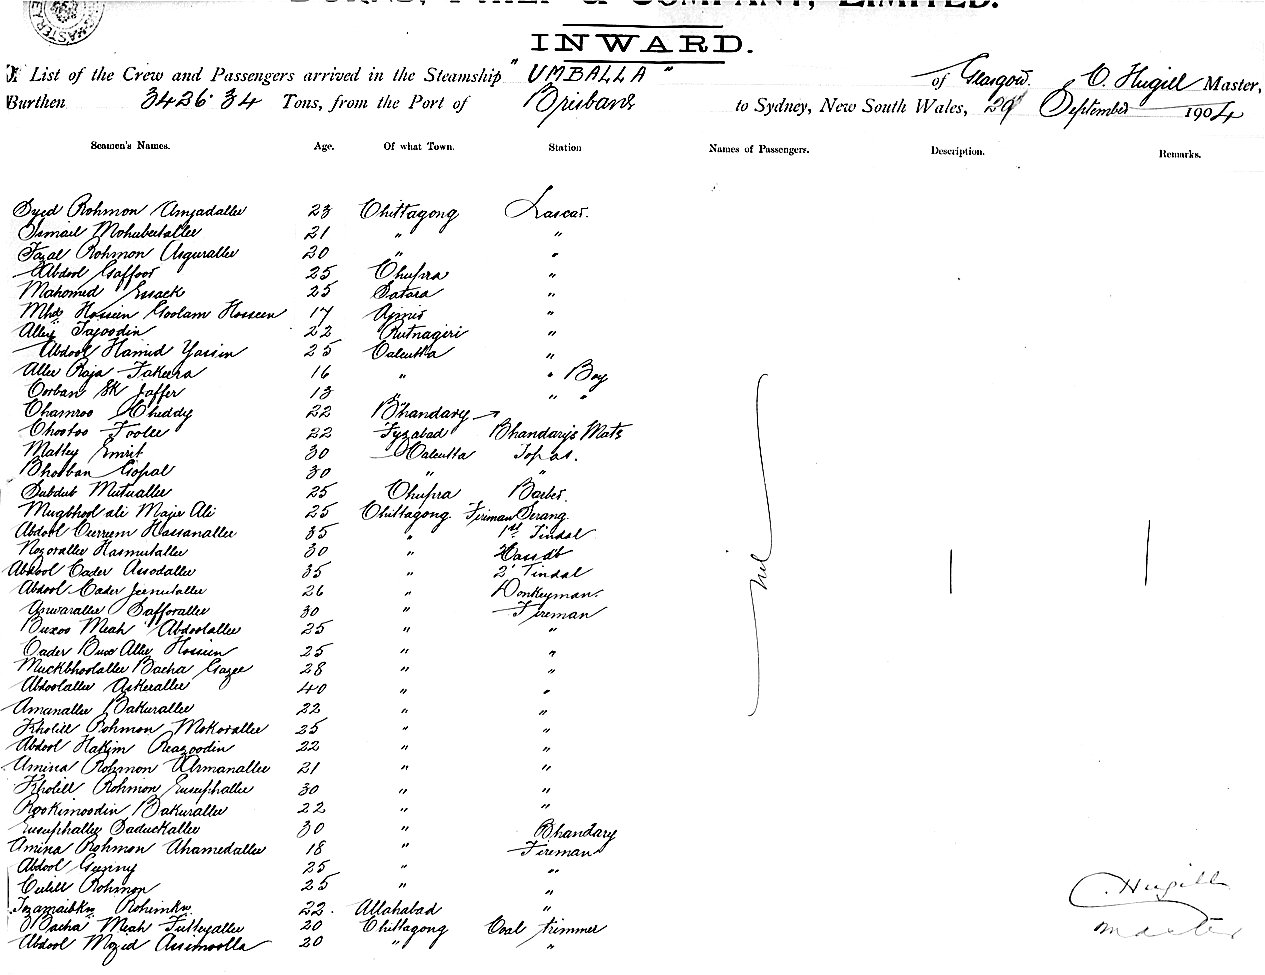 INWARD.
List of the Crew and Passengers arrived in the Steamship "UMBALLA" of Glasgow. O. Hugill Master,
Burthen 3426.34 Tons, from the Port of Brisbane to Sydney, New South Wales, 29 September 1904
Seamen's Names. Age. Of what Town. Station Names of Passengers. Description. Remarks.
Syed Rohmon Amjadallee 23 Chittagong Lascar.
Ismail Mohubutallee 21 " "
Fazal Rohmon Asgurallee 20 " "
Abdool Gaffoor 25 Chupra "
Mahomed Essack 25 Satara "
Mhd Hossein Goolam Hossein 17 Ajmir "
Alley Tajoodin 22 Rutnagiri "
Abdool Hamid Yassin 25 Calcutta "
Allee Raja Fakeera 16 " " Boy
Corban SK Jaffer 13 " " "
Chamroo Cheddy 22 Bhandary
Chootoo Foolee 22 Fyzabad Bhandary's Mate
Matley Emrit 30 Calcutta Topas.
Bhooban Gopal 30 " "
Subdub Mutuallee 25 Chupra Barber.
Mugbhool ali Maju Ali 25 Chittagong Fireman Serang
Abdool Currem Hassanallee 35 " 1st Tindal
Nozorallee Hasmutallee 30 " Cassab
Abdool Cader Assodallee 35 " 2 Tindal
Abdool Cader Jeenutallee 26 " Donkeyman.
Anwarallee Safforallee 30 " Fireman
Buxoo Meah Abdoolallee 25 " "
Cader Bux Alley Hossein 25 " "
Muckbhoolallee Bacha Gazee 28 " "
Abdoolallee Askerallee 40 " "
Amanallee Bakurallee 22 " "
Kholill Rohmon Mokorallee 25 " "
Abdool Hakim Reazoodin 22 " "
Amina Rohmon Armanallee 21 " "
Kholill Rohmon Eusuphallee 30 " "
Rookimoodin Bakurallee 22 " "
Eusuphallee Saduckallee 30 " Bhandary
Amina Rohmon Ahamedallee 18 " Fireman
Abdool Gunny 25 " "
Rohmon 25 " "
Rohimkn 22. Allahabad "
Bacha Meah Futteyallee 20 Chittagong Coal trimmer
Abdool Mozid Assimoolla 20 " "
nil
C. Hugill
Master